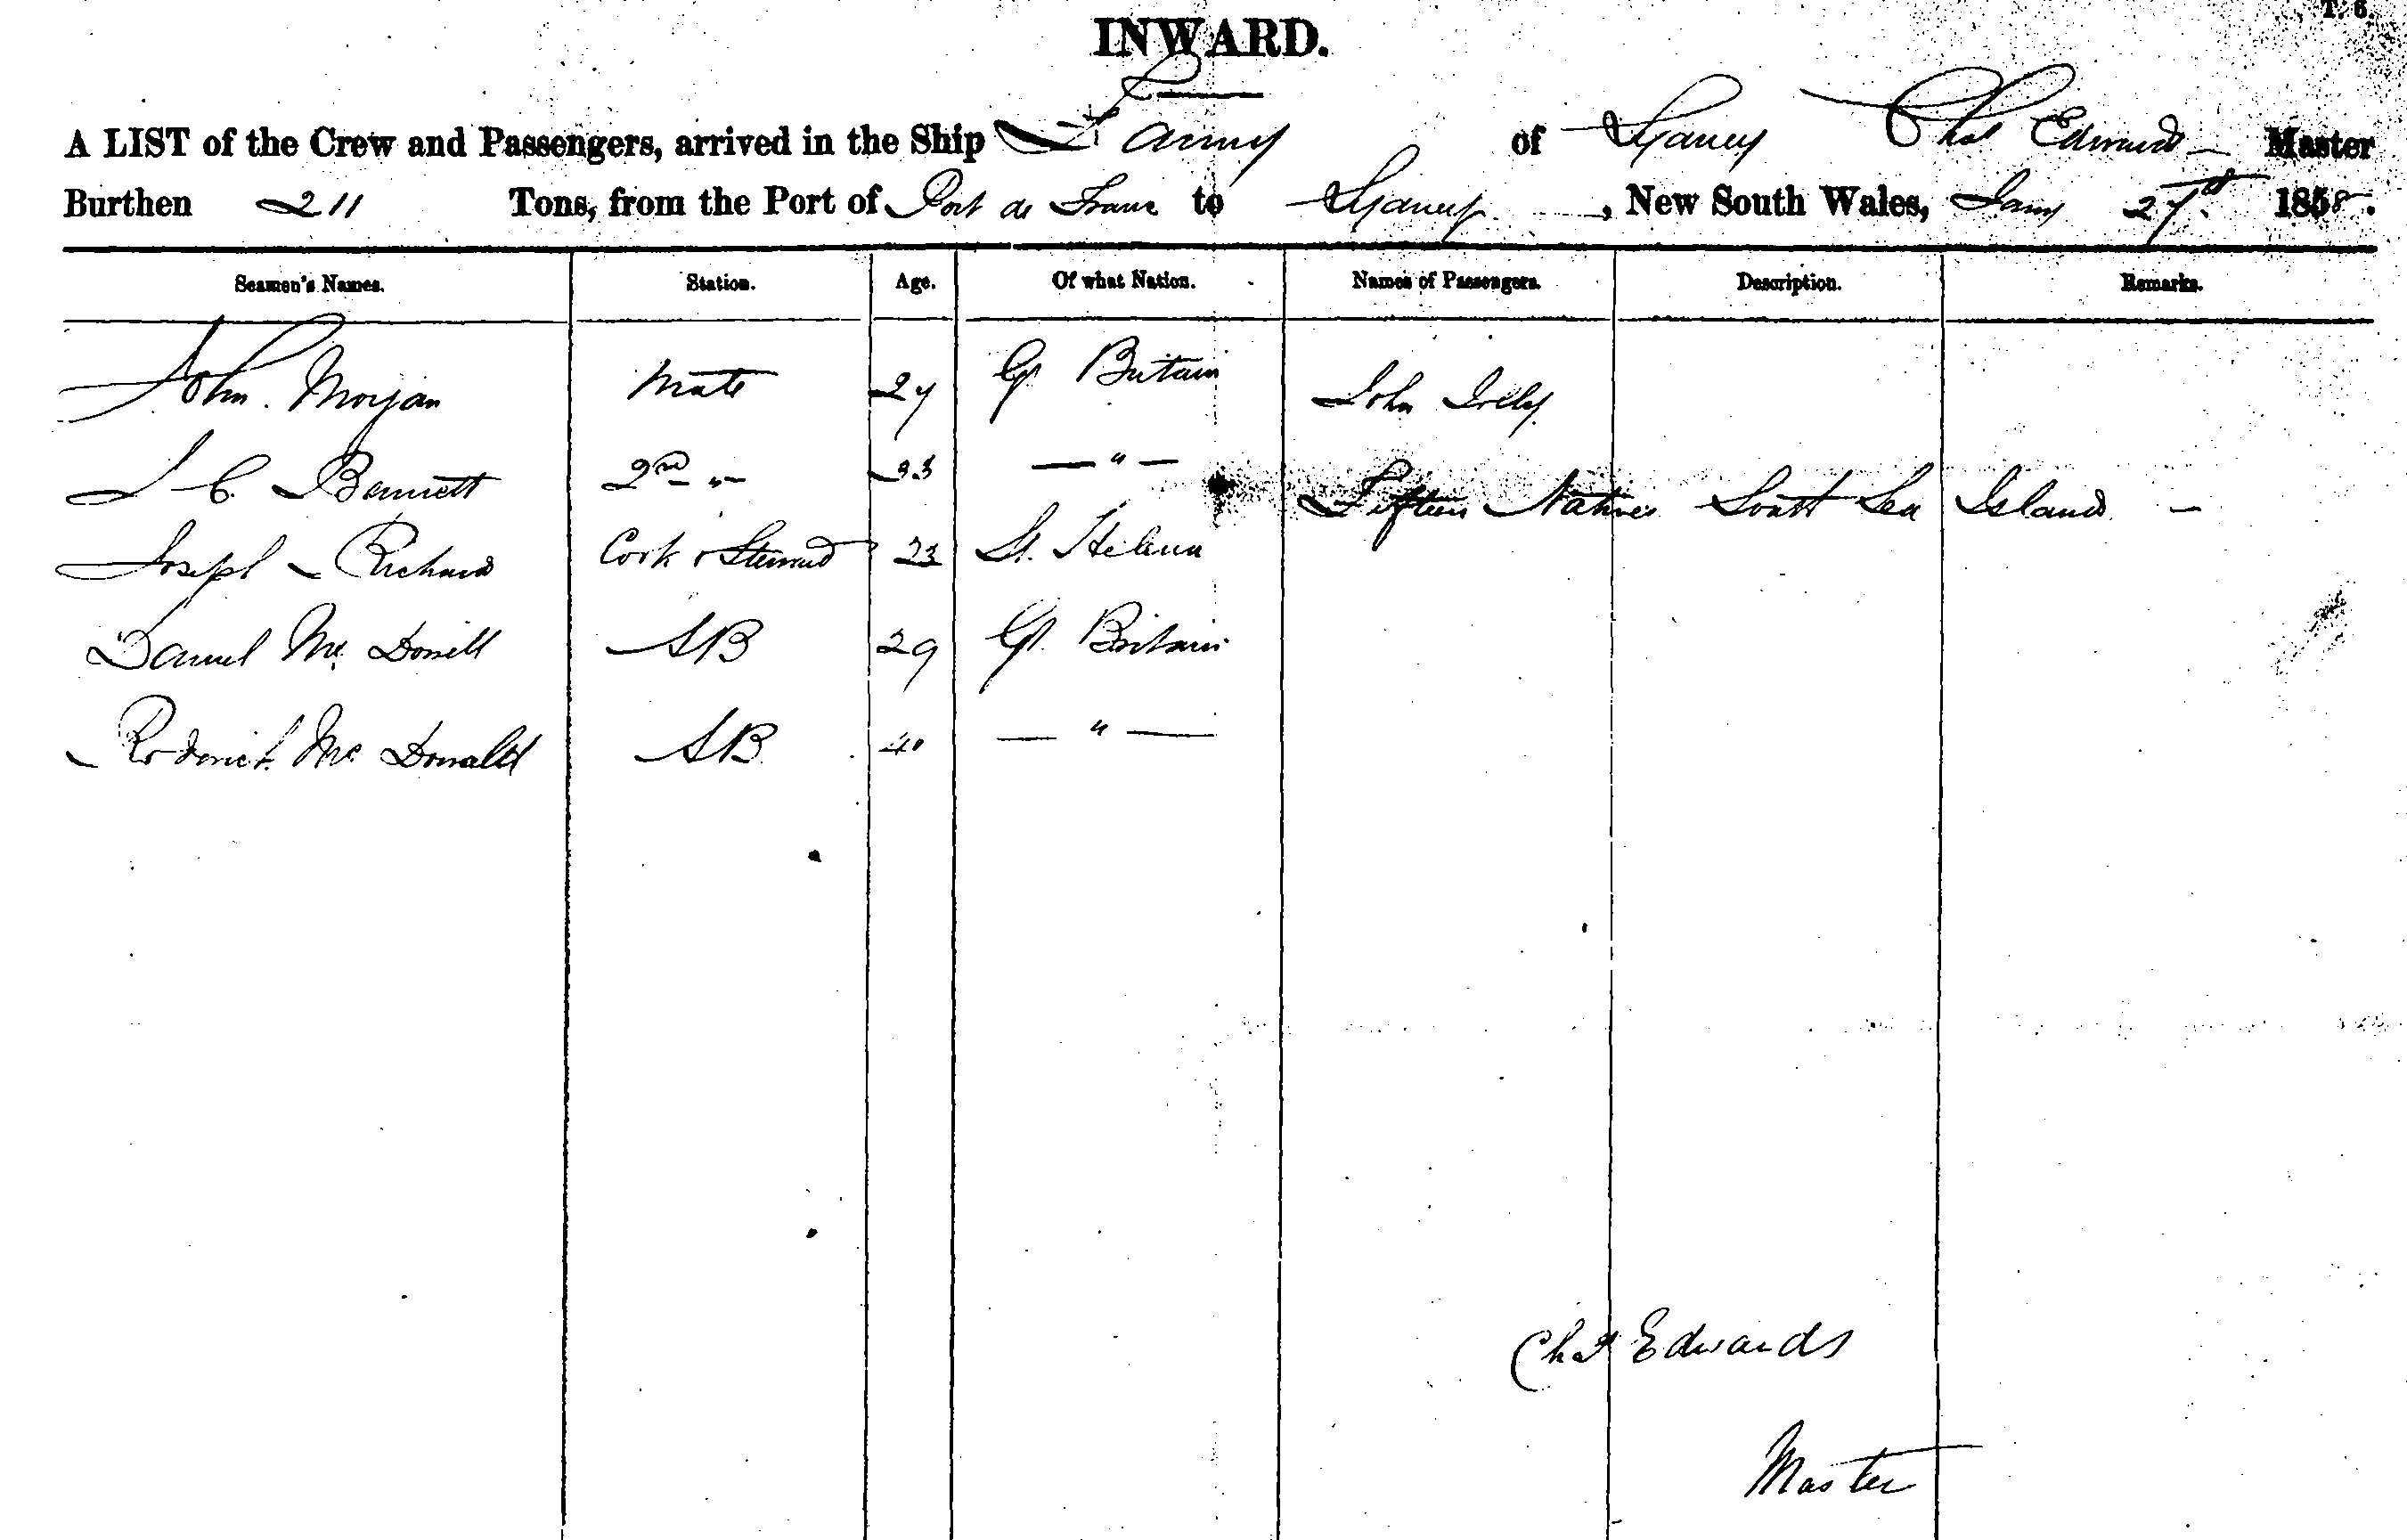 T. 6.
INWARD.
A LIST of the Crew and Passengers, arrived in the Ship Fanny of Sydney Chas Edwards Master
Burthen 211 Tons, from the Port of Port de France to Sydney, New South Wales, Jany 27th 1858.
Seamen's Names. Station. Age. Of what Nation. Names of Passengers. Description. Remarks.
John Morgan Mate 27 Gt Britain John Jolly
J C Bennett 2nd -"- 33 — " —
Fifteen Natives South Sea Islands —
Joseph Richards Cook & Steward 23 St. Helena
Daniel Mc Donell AB 29 Gt. Britain
Roderick Mc Donald AB 40 — " —
Chas Edwards
Master